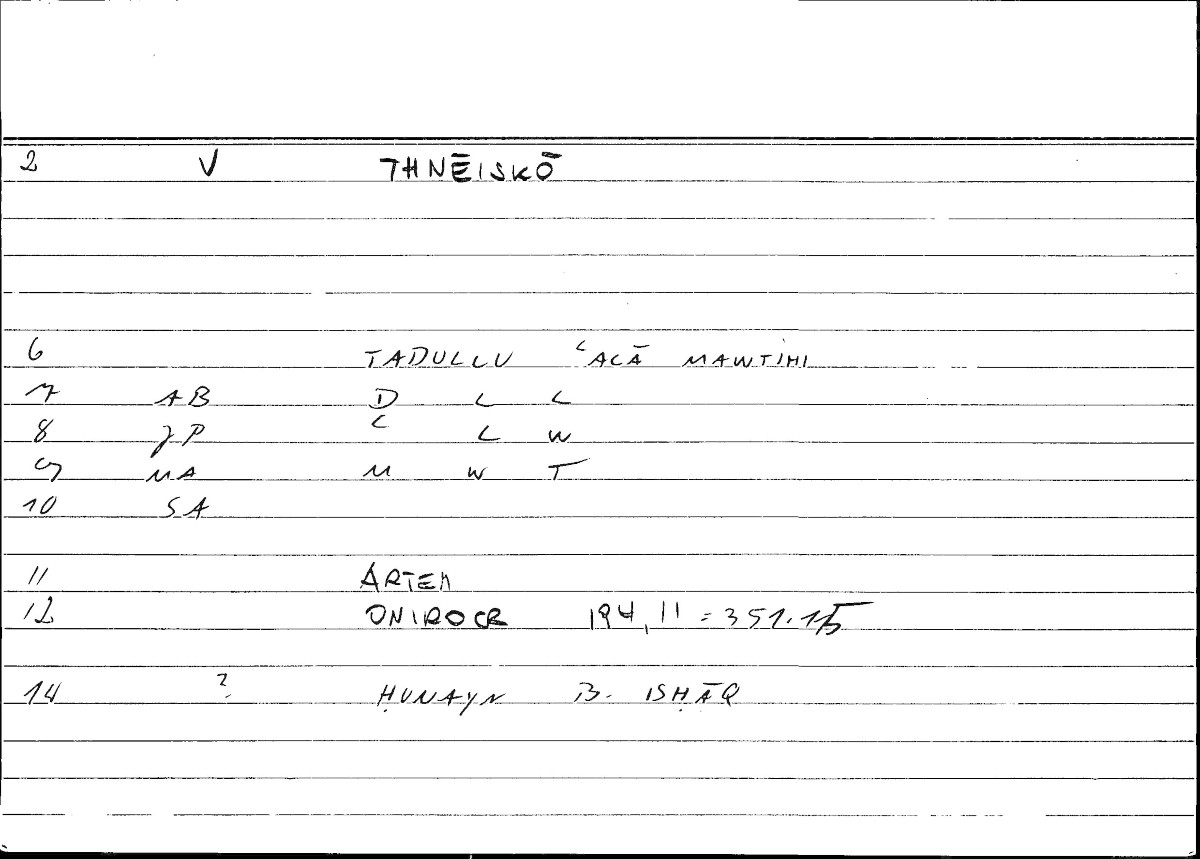 2 V THNĒISKŌ
6 TADULLU ʿALĀ MAWTIHI
7 AB D L L
8 JP ʿ L W
9 MA M W T
10 SA
11 ARTEM
12 ONIROCR 194,11 = 351.15
14 ? ḤUNAYN B. ISḤĀQ